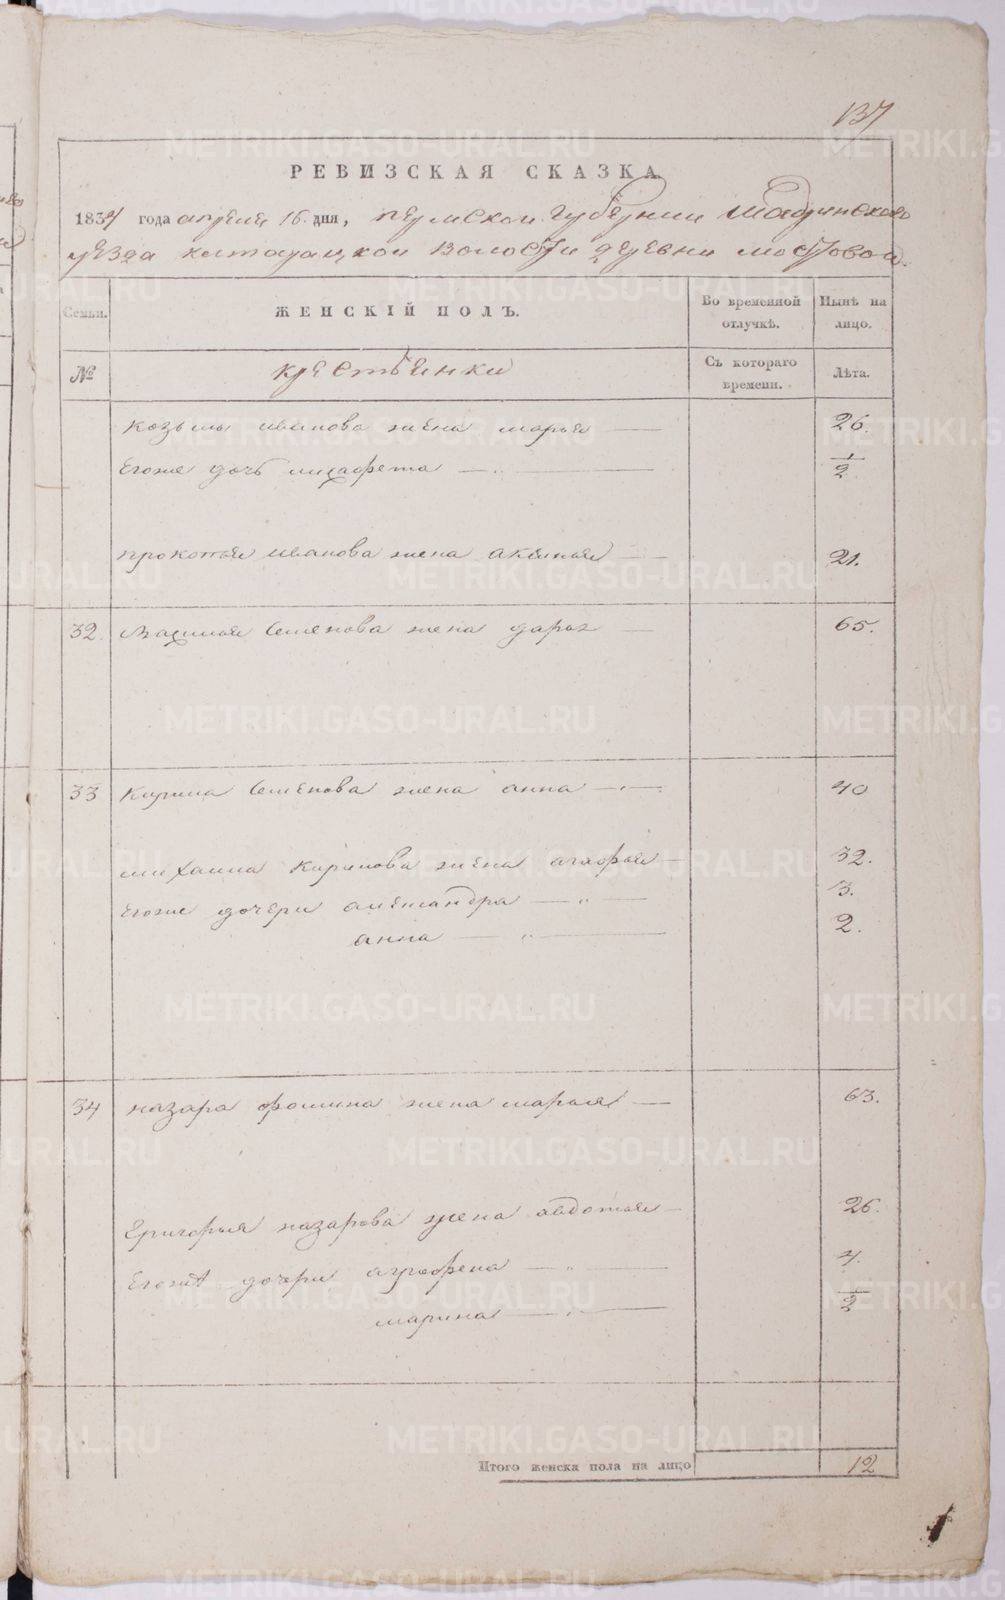 137
РЕВИЗСКАЯ СКАЗКА
1834 года апреле 16. дня, пермскои губернии шадринскаго
уезда волости деревни мостовои.
Семьи. ЖЕНСКІЙ ПОЛЪ. Во временной отлучкѣ. Нынѣ на лицо.
№ крестьянки Съ котораго времени. Лѣта.
козьмы иванова жена марья 26.
Егоже дочь 1/2
прокопья иванова жена аксинья 21.
32. Семенова жена дарья 65.
33 Кирила Семенова жена анна 40
михаила Кирилова жена агафья 32.
Егоже дочери александра 3.
анна 2.
34 назара фомина жена марья 63.
Григорья назарова жена авдотья 26.
Егоже дочери аграфена 4.
марина 1/2
Итого женска пола на лицо 12
METRIKI.GASO-URAL.RU